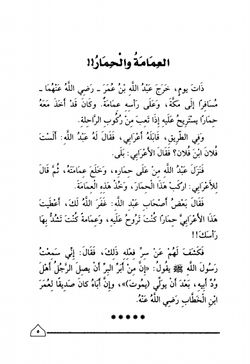 العِمَامَةُ والْحِمَارُ!!
ذَاتَ يومٍ، خَرَجَ عَبْدُ اللَّهِ بْنُ عُمَرَ - رَضِيَ اللَّهُ عَنْهُمَا -
مُسَافِرًا إِلَى مَكَّةَ، وَعَلَى رَأْسِهِ عِمَامَةٌ. وَكَانَ قَدْ أَخَذَ مَعَهُ
حِمَارًا يستَرِيحُ عَلَيْهِ إِذَا تَعِبَ مِنْ رُكُوبِ الرَّاحِلَةِ.
وَفِي الطَّرِيقِ، قَابَلَهُ أَعْرَابِي، فَقَالَ لَهُ عَبْدُ اللَّهِ: أَلَسْتَ
فُلانَ ابْنَ فُلَانٍ؟ فَقَالَ الأَعْرَابِيُّ: بَلَى.
فَنَزَلَ عَبْدُ اللَّهِ مِنْ عَلَى حِمَارِهِ، وَخَلَعَ عِمَامَتَهُ، ثُمَّ قَالَ
لِلأَعْرَابِي: ارْكَبْ هَذَا الْحِمَارَ، وَخُذْ هَذِهِ الْعِمَامَةَ.
فَقَالَ بَعْضُ أَصْحَابِ عَبْدِ اللَّهِ: غَفَرَ اللَّهُ لَكَ، أَعْطَيْتَ
هَذَا الأَعْرَابِيَّ حِمَارًا كُنْتَ تَرُوحُ عَلَيْهِ، وَعِمَامَةً كُنْتَ تَشُدُّ بِهَا
رَأْسَكَ!!
فَكَشَفَ لَهُمْ عَنْ سِرِّ فِعْلِهِ ذَلِكَ، فَقَالَ: إِنِّي سَمِعْتُ
رَسُولَ اللَّهِ ﷺ يَقُولُ: «إِنَّ مِنْ أَبَرِّ الْبِرِّ أَنْ يَصِلَ الرَّجُلُ أَهْلَ
وُدِّ أَبِيهِ، بَعْدَ أَنْ يُوَلِّيَ (يموتَ)»، وَإِنَّ أَبَاهُ كَانَ صَدِيقًا لِعُمَرَ
بْنِ الْخَطَّابِ رَضِيَ اللَّهُ عَنْهُ.
*****
٥